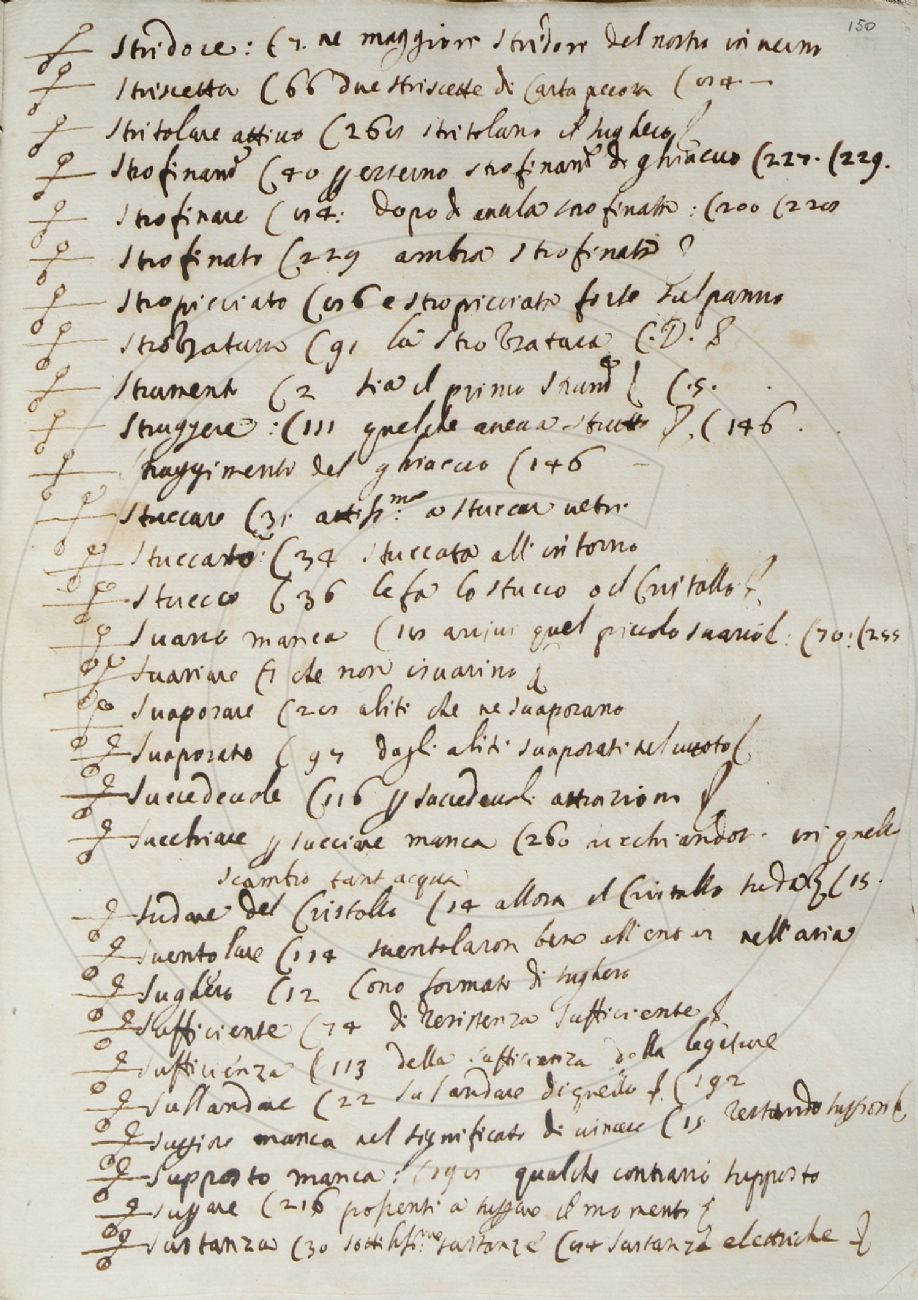 150
Stridore: (7. ne maggiore Stridore del nostro inverno
Striscetta (66 due striscette di Carta pecora
Stritolare attivo (26 stritolano il sughero
Strofinam.to (40 esterno strofinam.to di ghiaccio (227. (229.
Strofinare dopo d'averla strofinata: (200
Strofinato (229 ambra strofinata
Stropicciato e stropicciata forte sul panno
Strozzatura (91 la Strozzatura (.D.
Strumento (2 sia il primo (.5.
Struggere: (111 quelche aveva strutto (146.
Struggimento del ghiaccio (146
Stuccare (31. attiss.mo a stuccar vetri.
Stuccato: (34 stuccata all'intorno
Stucco (36 lo stucco o il Cristallo
Svario manca quel piccolo svario (70: (255
Svariare che non isvarino
Svaporare aliti che ne svaporano
Svaporato (97 dagli aliti svaporati nel vuoto
Succedevole (116 succedevoli attrazioni
Succhiare succiare manca (260 succhiandosi in quello
scambio tant'acqua
Sudare del Cristallo (14 allora il Cristallo suda (15.
Sventolare (114 sventolaron bene nell'aria
Sughero (12 Cono formato di sughero
Sufficiente (74 di resistenza sufficiente
Sufficienza (113 della sufficienza della legature
Sullandare (22 Sul andare di quello (192
manca nel significato di restando
Supposto manca: qualche contrario supposto
(216 possenti a il momento
Sustanza (30 sottiliss.me sustanze sustanza elettriche